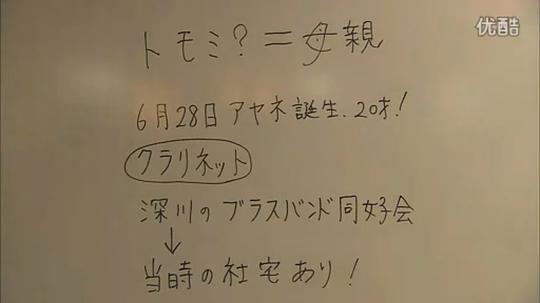 优酷
トモミ?=母親
6月28日アヤネ誕生.20才!
クラリネット
深川のブラスバンド同好会
↓
当時の社宅あり!